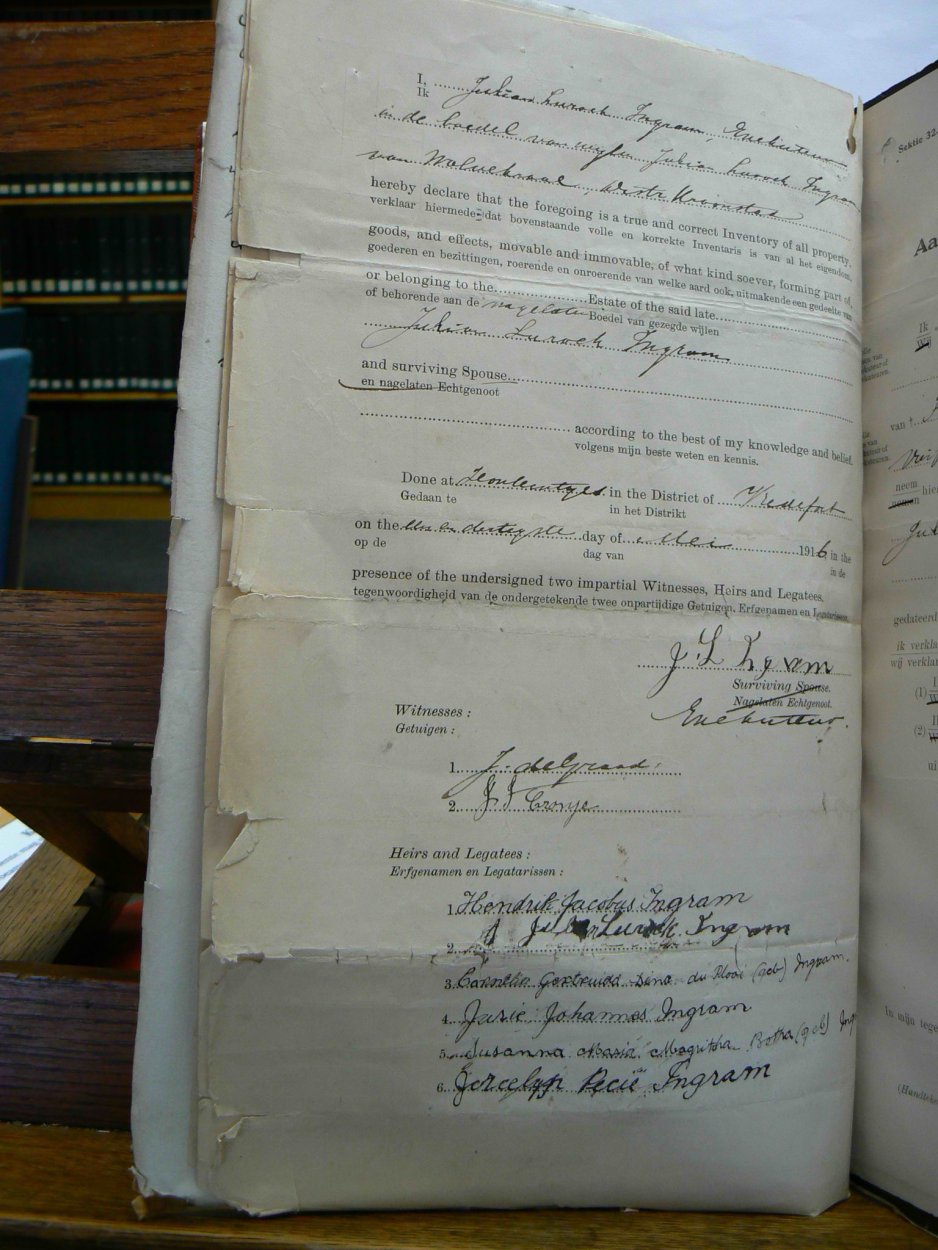 I, Julian Luroch Ingram, Executeur
Ik
in de boedel van wijlen Julian Luroch Ingram
van Distr. Kroonstad
hereby declare that the foregoing is a true and correct Inventory of all property,
verklaar hiermede dat bovenstaande volle en korrekte Inventaris is van al het eigendom,
goods, and effects, movable and immovable, of what kind soever, forming part of,
goederen en bezittingen, roerende en onroerende van welke aard ook, uitmakende een gedeelte van
or belonging to the Estate of the said late
of behorende aan de nagelaten Boedel van gezegde wijlen
Julian Luroch Ingram
and surviving Spouse
en nagelaten Echtgenoot
according to the best of my knowledge and belief.
volgens mijn beste weten en kennis.
Done at in the District of Vredefort
Gedaan te in het Distrikt
on the een en dertigste day of Mei 1916 in the
op de dag van in de
presence of the undersigned two impartial Witnesses, Heirs and Legatees.
tegenwoordigheid van de ondergetekende twee onpartijdige Getuigen, Erfgenamen en Legatarissen.
J L Ingram
Surviving Spouse.
Nagelaten Echtgenoot.
Executeur.
Witnesses :
Getuigen :
1. J. de
2. J J Cronje
Heirs and Legatees :
Erfgenamen en Legatarissen :
1. Hendrik Jacobus Ingram
2. Ingram
3. Dina du Plooi (geb) Ingram.
4. Jurie Johannes Ingram
5. Susanna Maria Magritha Botha (geb)
6. Ingram
Sektie 32
Aa
Ik
Wij
van
neem
nemen hier
gedateerd
ik verkla
wij verklar
(1)
(2)
In mijn tege
(Handteke